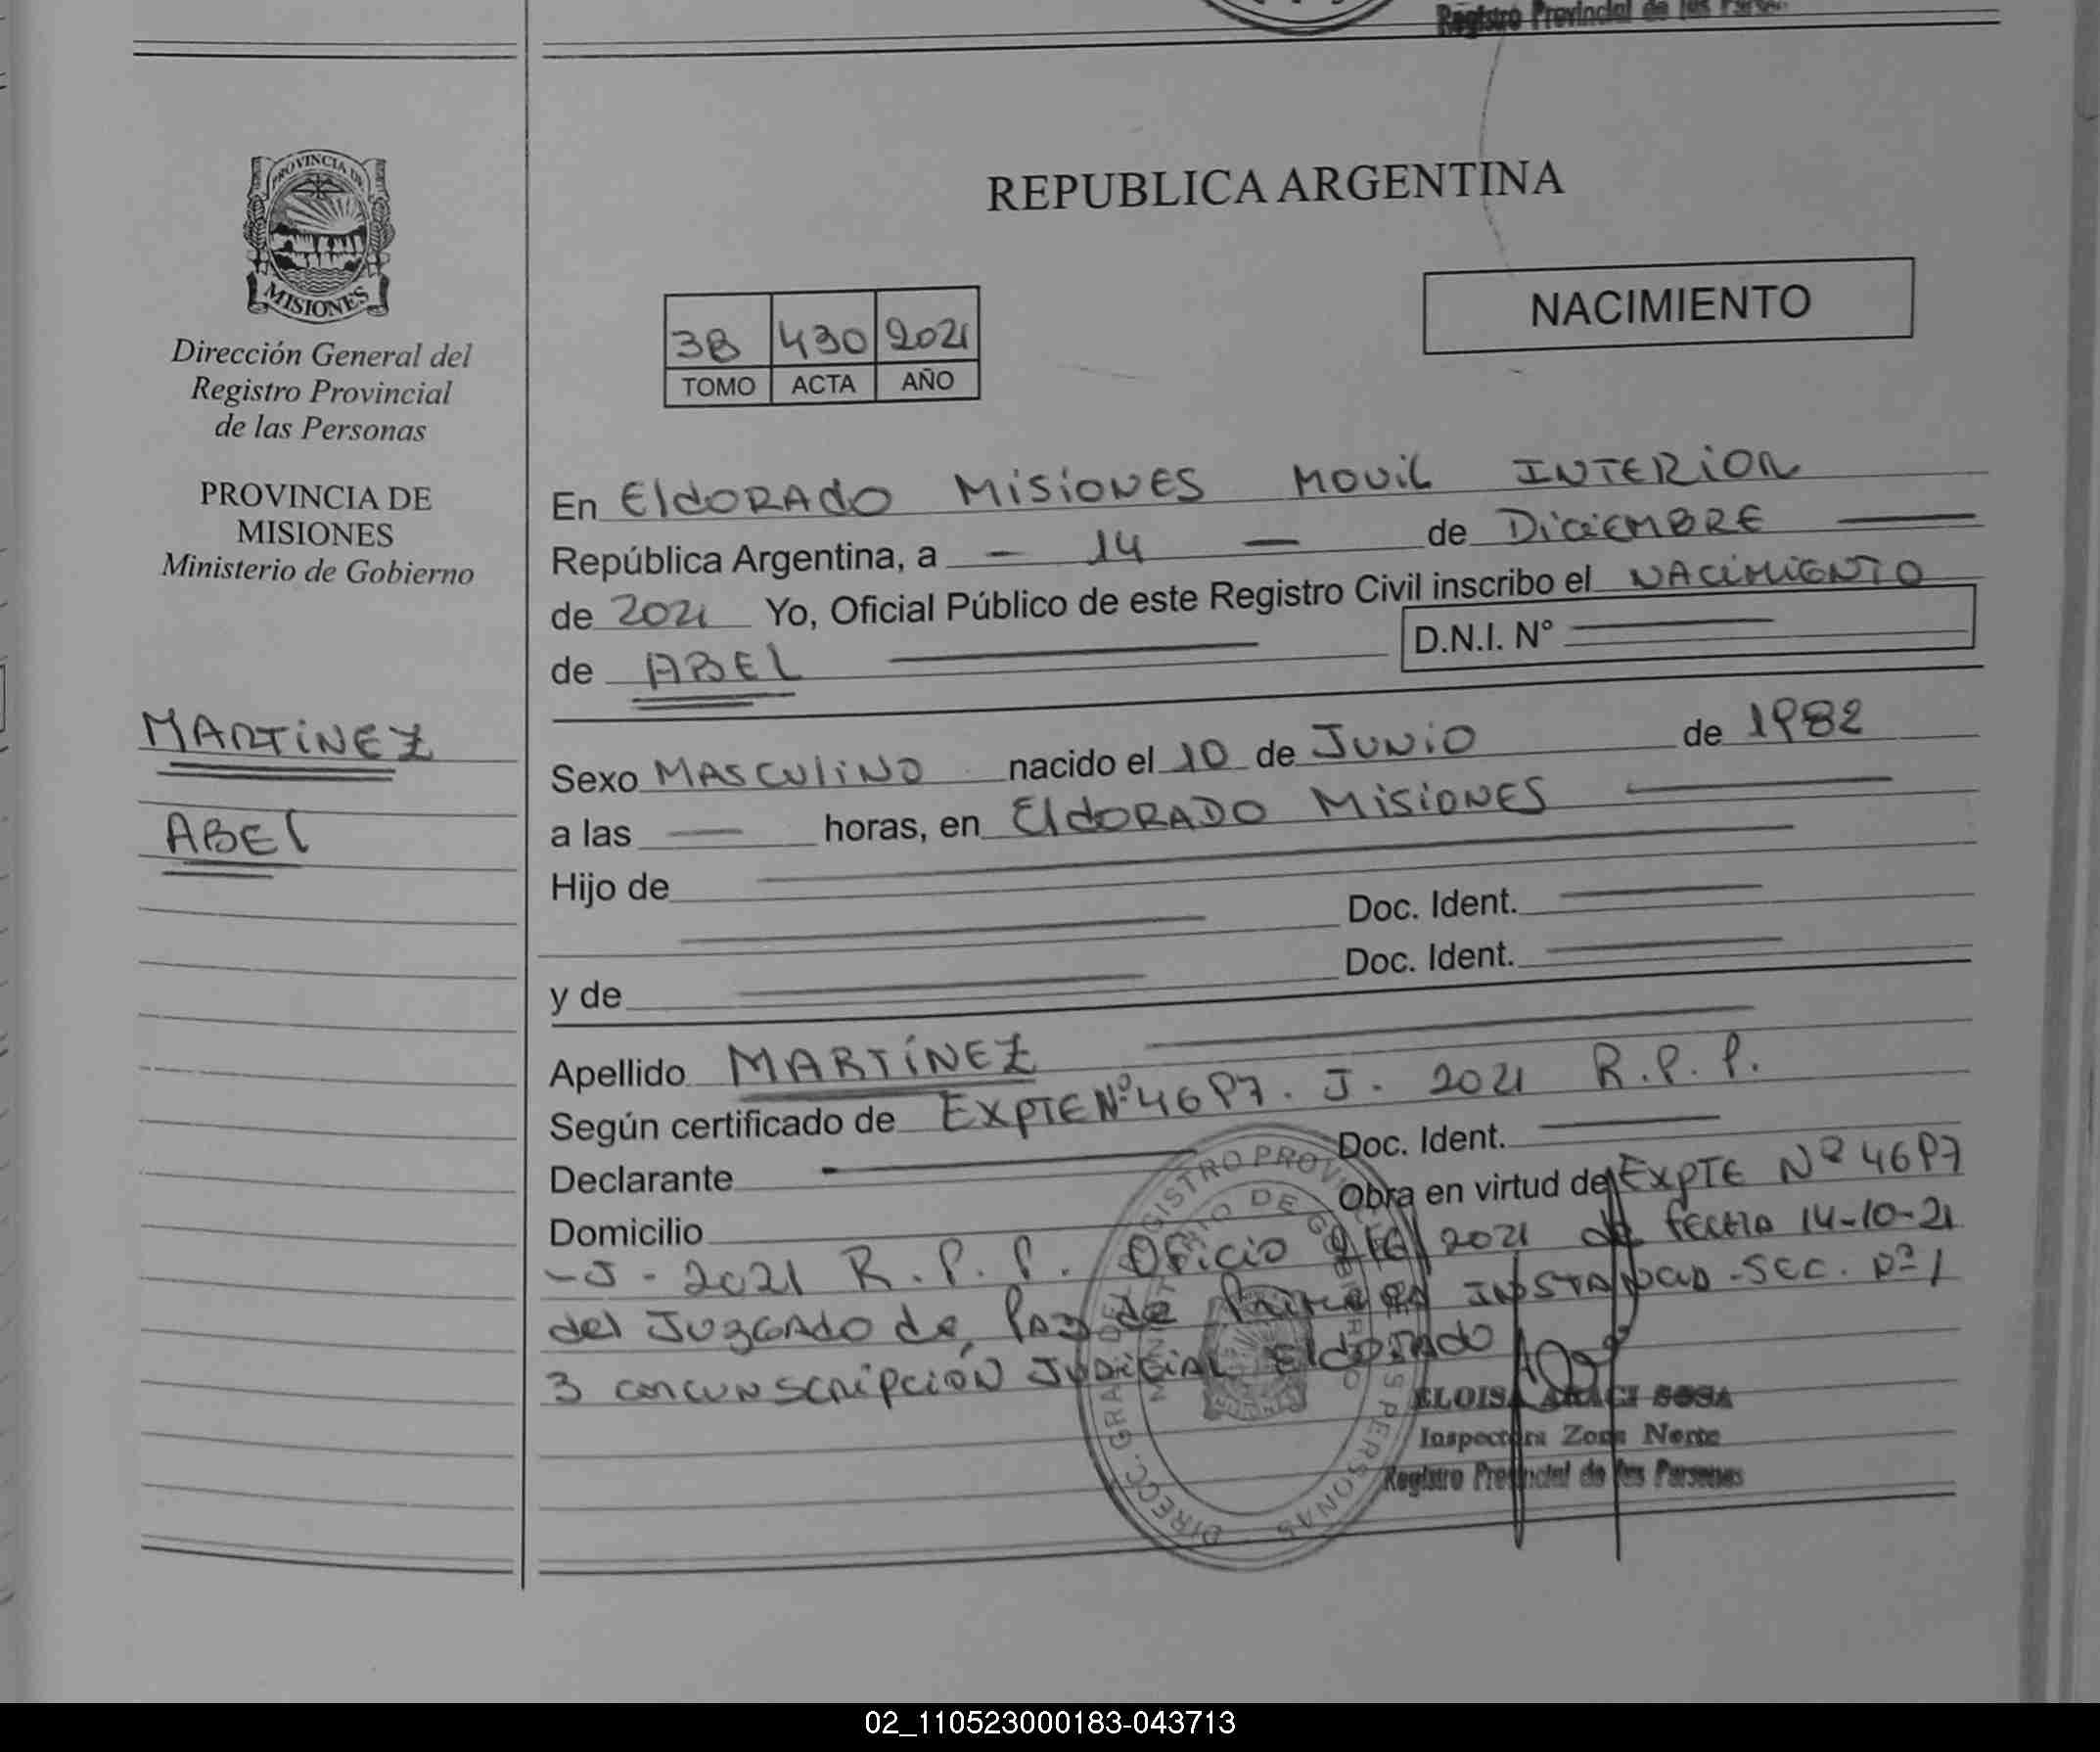 Registro Provincial de las Person
PROVINCIA DE
MISIONES
Dirección General del
Registro Provincial
de las Personas
PROVINCIA DE
MISIONES
Ministerio de Gobierno
MARTINEZ
ABEL
REPUBLICA ARGENTINA
NACIMIENTO
3B 430 2021
TOMO ACTA AÑO
En ElDORADO MISIONES MOVIL INTERIOR
República Argentina, a - 14 - de DICIEMBRE
de 2021 Yo, Oficial Público de este Registro Civil inscribo el NACIMIENTO
de ABEL D.N.I. N°
Sexo MASCULINO nacido el 10 de JUNIO de 1982
a las — horas, en ElDORADO MISIONES
Hijo de
Doc. Ident.
y de Doc. Ident.
Apellido MARTÍNEZ
Según certificado de EXPTE Nº 4697. J. 2021 R.P.P.
Declarante Doc. Ident.
Domicilio Obra en virtud de EXPTE Nº 4697
-J-2021 R.P.P. Oficio 2021 de fecha 14-10-21
del Juzgado de Paz de Primera INSTANCIA - SEC. Nº 1
3 concunscripción JUDICIAL ElDORADO
ELOISA ARACI SOSA
Inspectora Zona Norte
Registro Provincial de las Personas
DIRECC. GRAL. DEL REGISTRO PROV. PERSONAS
02_110523000183-043713